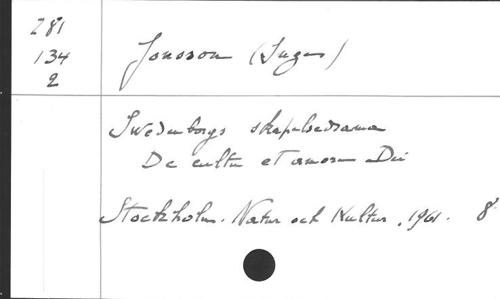 281
134
2
Jonsson (Inge)
Swedenborgs skapelsedrama
De cultu et amore Dei
Stockholm. Natur och Kultur, 1961. 8°